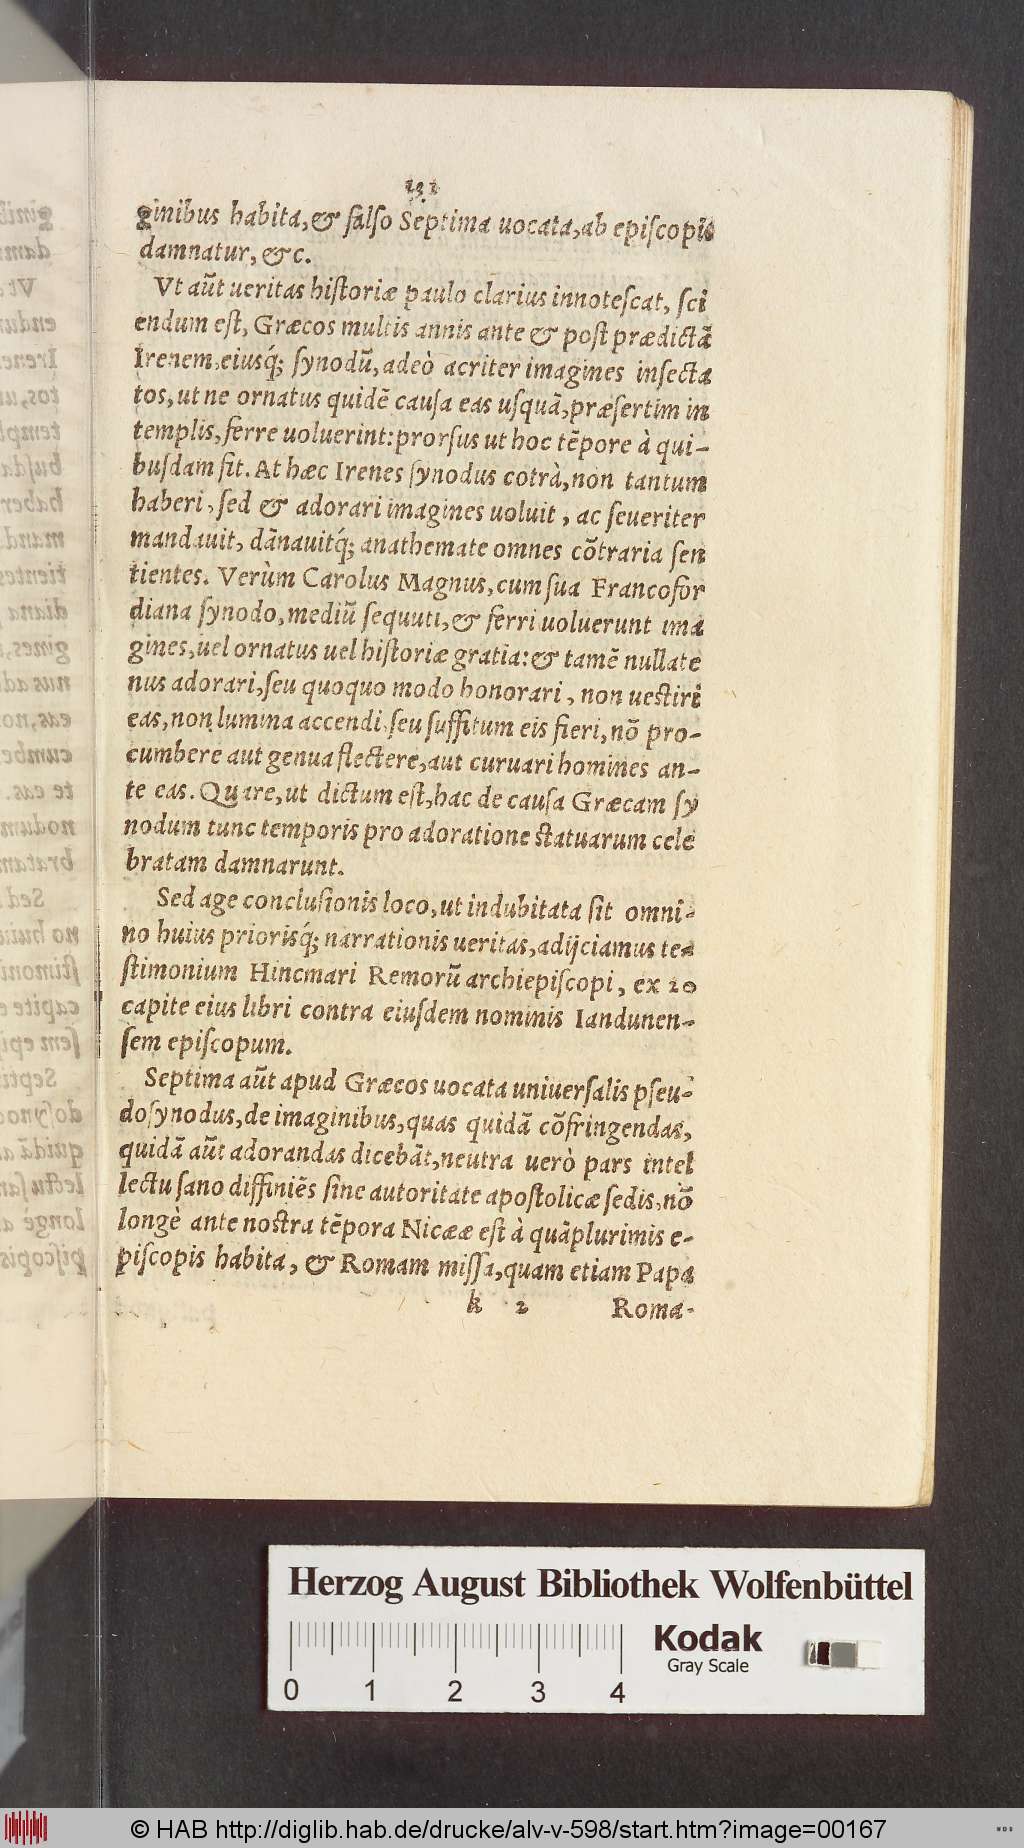 131
ginibus habita,& falſo Septima uocata,ab epiſcopis
damnatur, &c.
Vt aūt ueritas hiſtoriæ paulo clarius innoteſcat, ſci
endum eſt, Græcos multis annis ante & poſt prædictā
Irenem,eiusq́; ſynodū,adeò acriter imagines inſecta
tos,ut ne ornatus quidē cauſa eas uſquā,præſertim in
templis,ferre uoluerint:prorſus ut hoc tēpore à qui-
buſdam fit. At hæc Irenes ſynodus cotrà,non tantum
haberi,ſed & adorari imagines uoluit, ac ſeueriter
mandauit, dānauitq́; anathemate omnes cōtraria ſen
tientes. Verùm Carolus Magnus,cum ſua Francofor
diana ſynodo,mediū ſequuti,& ferri uoluerunt ima
gines,uel ornatus uel hiſtoriæ gratia:& tamē nullate
nus adorari,ſeu quoquo modo honorari, non ueſtiri
eas,non lumina accendi,ſeu ſuffitum eis fieri,nō pro-
cumbere aut genua flectere,aut curuari homines an-
te eas. Quare,ut dictum eſt,hac de cauſa Græcam ſy
nodum tunc temporis pro adoratione ſtatuarum cele
bratam damnarunt.
Sed age concluſionis loco,ut indubitata ſit omni-
no huius priorisq́; narrationis ueritas,adijciamus te-
ſtimonium Hincmari Remorū archiepiſcopi, ex 20
capite eius libri contra eiuſdem nominis Iandunen-
ſem epiſcopum.
Septima aūt apud Græcos uocata uniuerſalis pſeu-
doſynodus,de imaginibus,quas quidā cōfringendas,
quidā aūt adorandas dicebāt,neutra uerò pars intel
lectu ſano diffiniēs ſine autoritate apoſtolicæ ſedis,nō
longè ante noſtra tēpora Nicææ eſt à quāplurimis e-
piſcopis habita, & Romam miſſa,quam etiam Papa
k 2 Roma-
Herzog August Bibliothek Wolfenbüttel
Kodak
Gray Scale
0 1 2 3 4
© HAB http://diglib.hab.de/drucke/alv-v-598/start.htm?image=00167